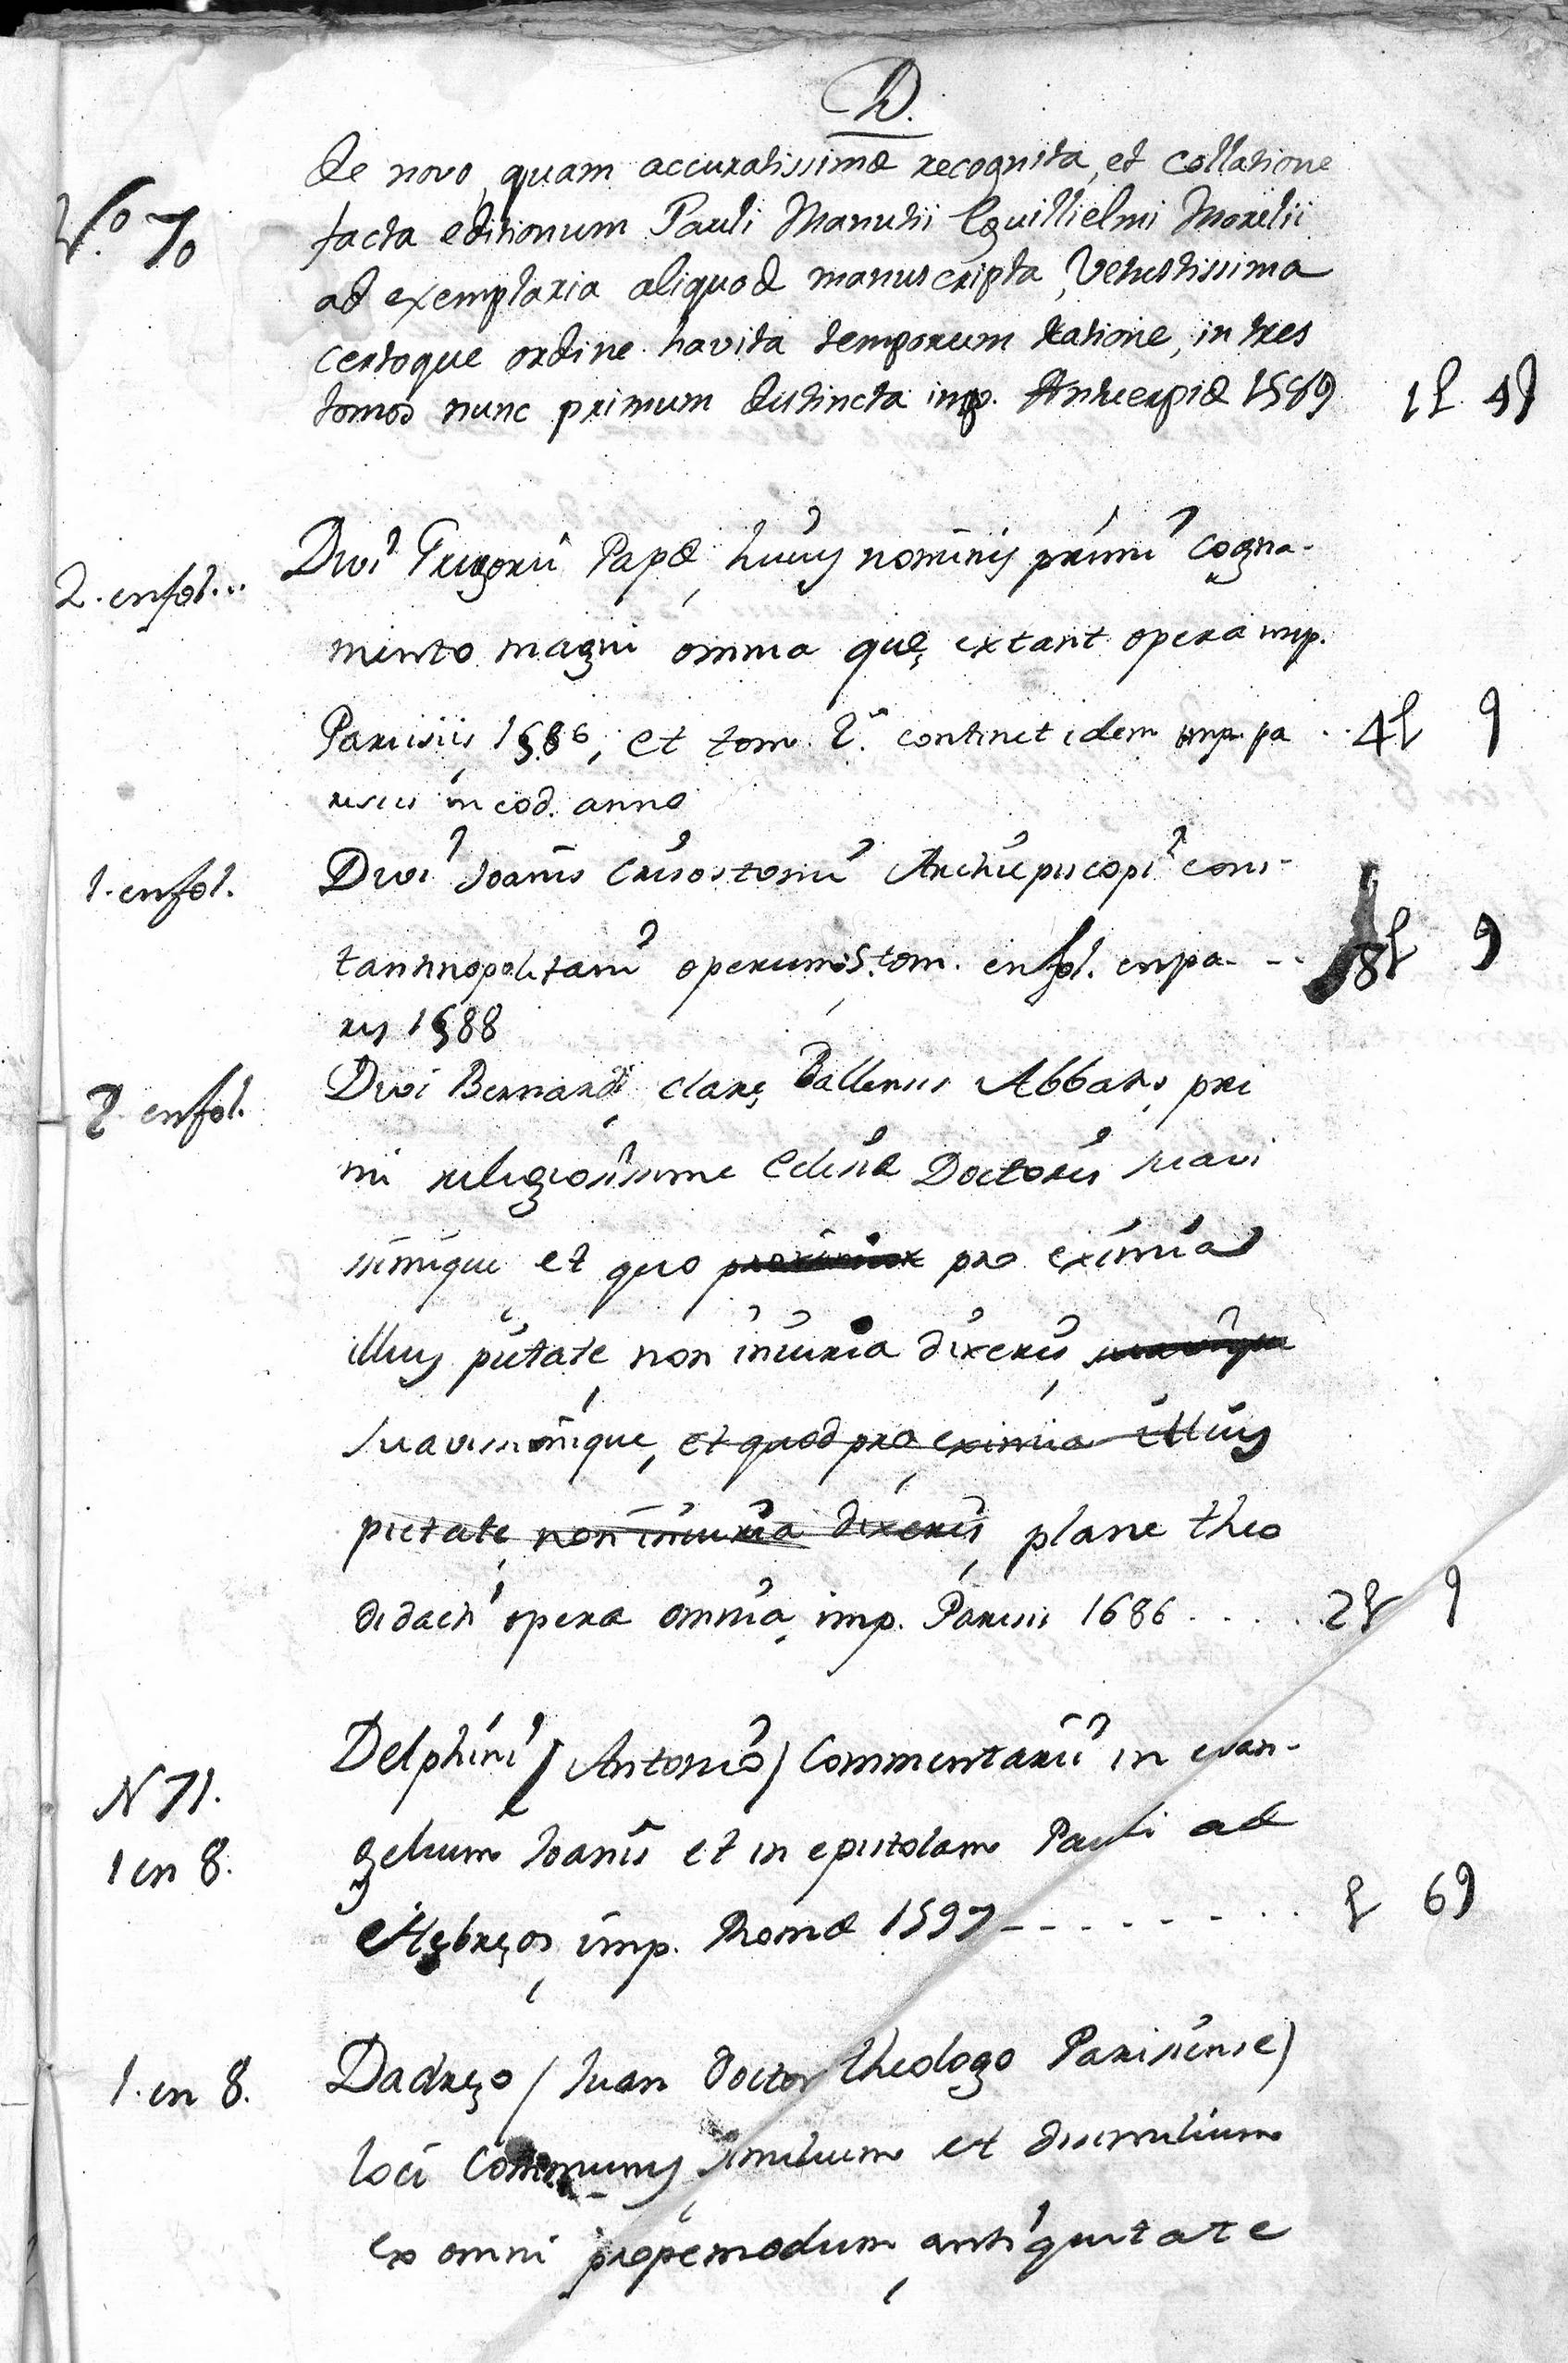 D.
de novo, quam accuratissimæ recognita, et collatione
Nº. 70 facta editionum Pauli Manutii Guillielmi Morelii
ad exemplaria aliquod manuscripta, Vetustissima
certoque ordine havita temporum ratione, in tres
tomos nunc primum distincta imp. Antuerpiæ 1589
Divi Gregorii Papæ, huius nominis primi cogna-
2. en fol...
mento magni omnia quę extant opera imp.
Parisiis, 1586, et tom. 2.º continet idem imp. pa
risiis in eod. anno
1. en fol. Divi Joanis Crisostomi Archiepiscopi cons-
tantinopolitani operum 5. tom. en fol. en pa- --
ris 1588
2 en fol. Divi Bernardi, clarę Vallensis Abbatis, pri
mi religiosissime Eclesiæ Doctoris suavi
simique et quo pro eximia
illius pietate, non iniuria dixeris,
suavissimique, et quod pro eximia illius
pietate, non iniuria dixeris, plane theo
didacti opera omnia, imp. Parisiis 1686 . . . .
Delphini (Antonio) Commentarii in evan-
N 71.
gelium Ioanis et in epistolam Pauli ad
1 en 8.
Hębręos, imp. Romæ 1597 - - - - - - - - 69
1. en 8. Dadręo (Juan doctor theologo Parisiense)
loci Communes similium et disimilium
ex omni propemodum, antiquitate